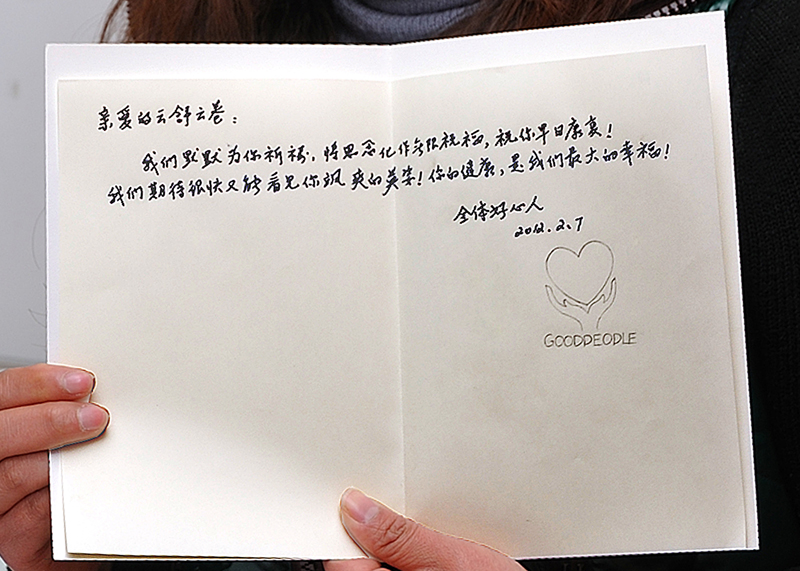 亲爱的云舒云卷：
我们默默为你祈祷，将思念化作无限祝福，祝你早日康复！
我们期待很快又能看见你飒爽的英姿！你的健康，是我们最大的幸福！
全体好心人
2012.2.7
GOODPEOPLE